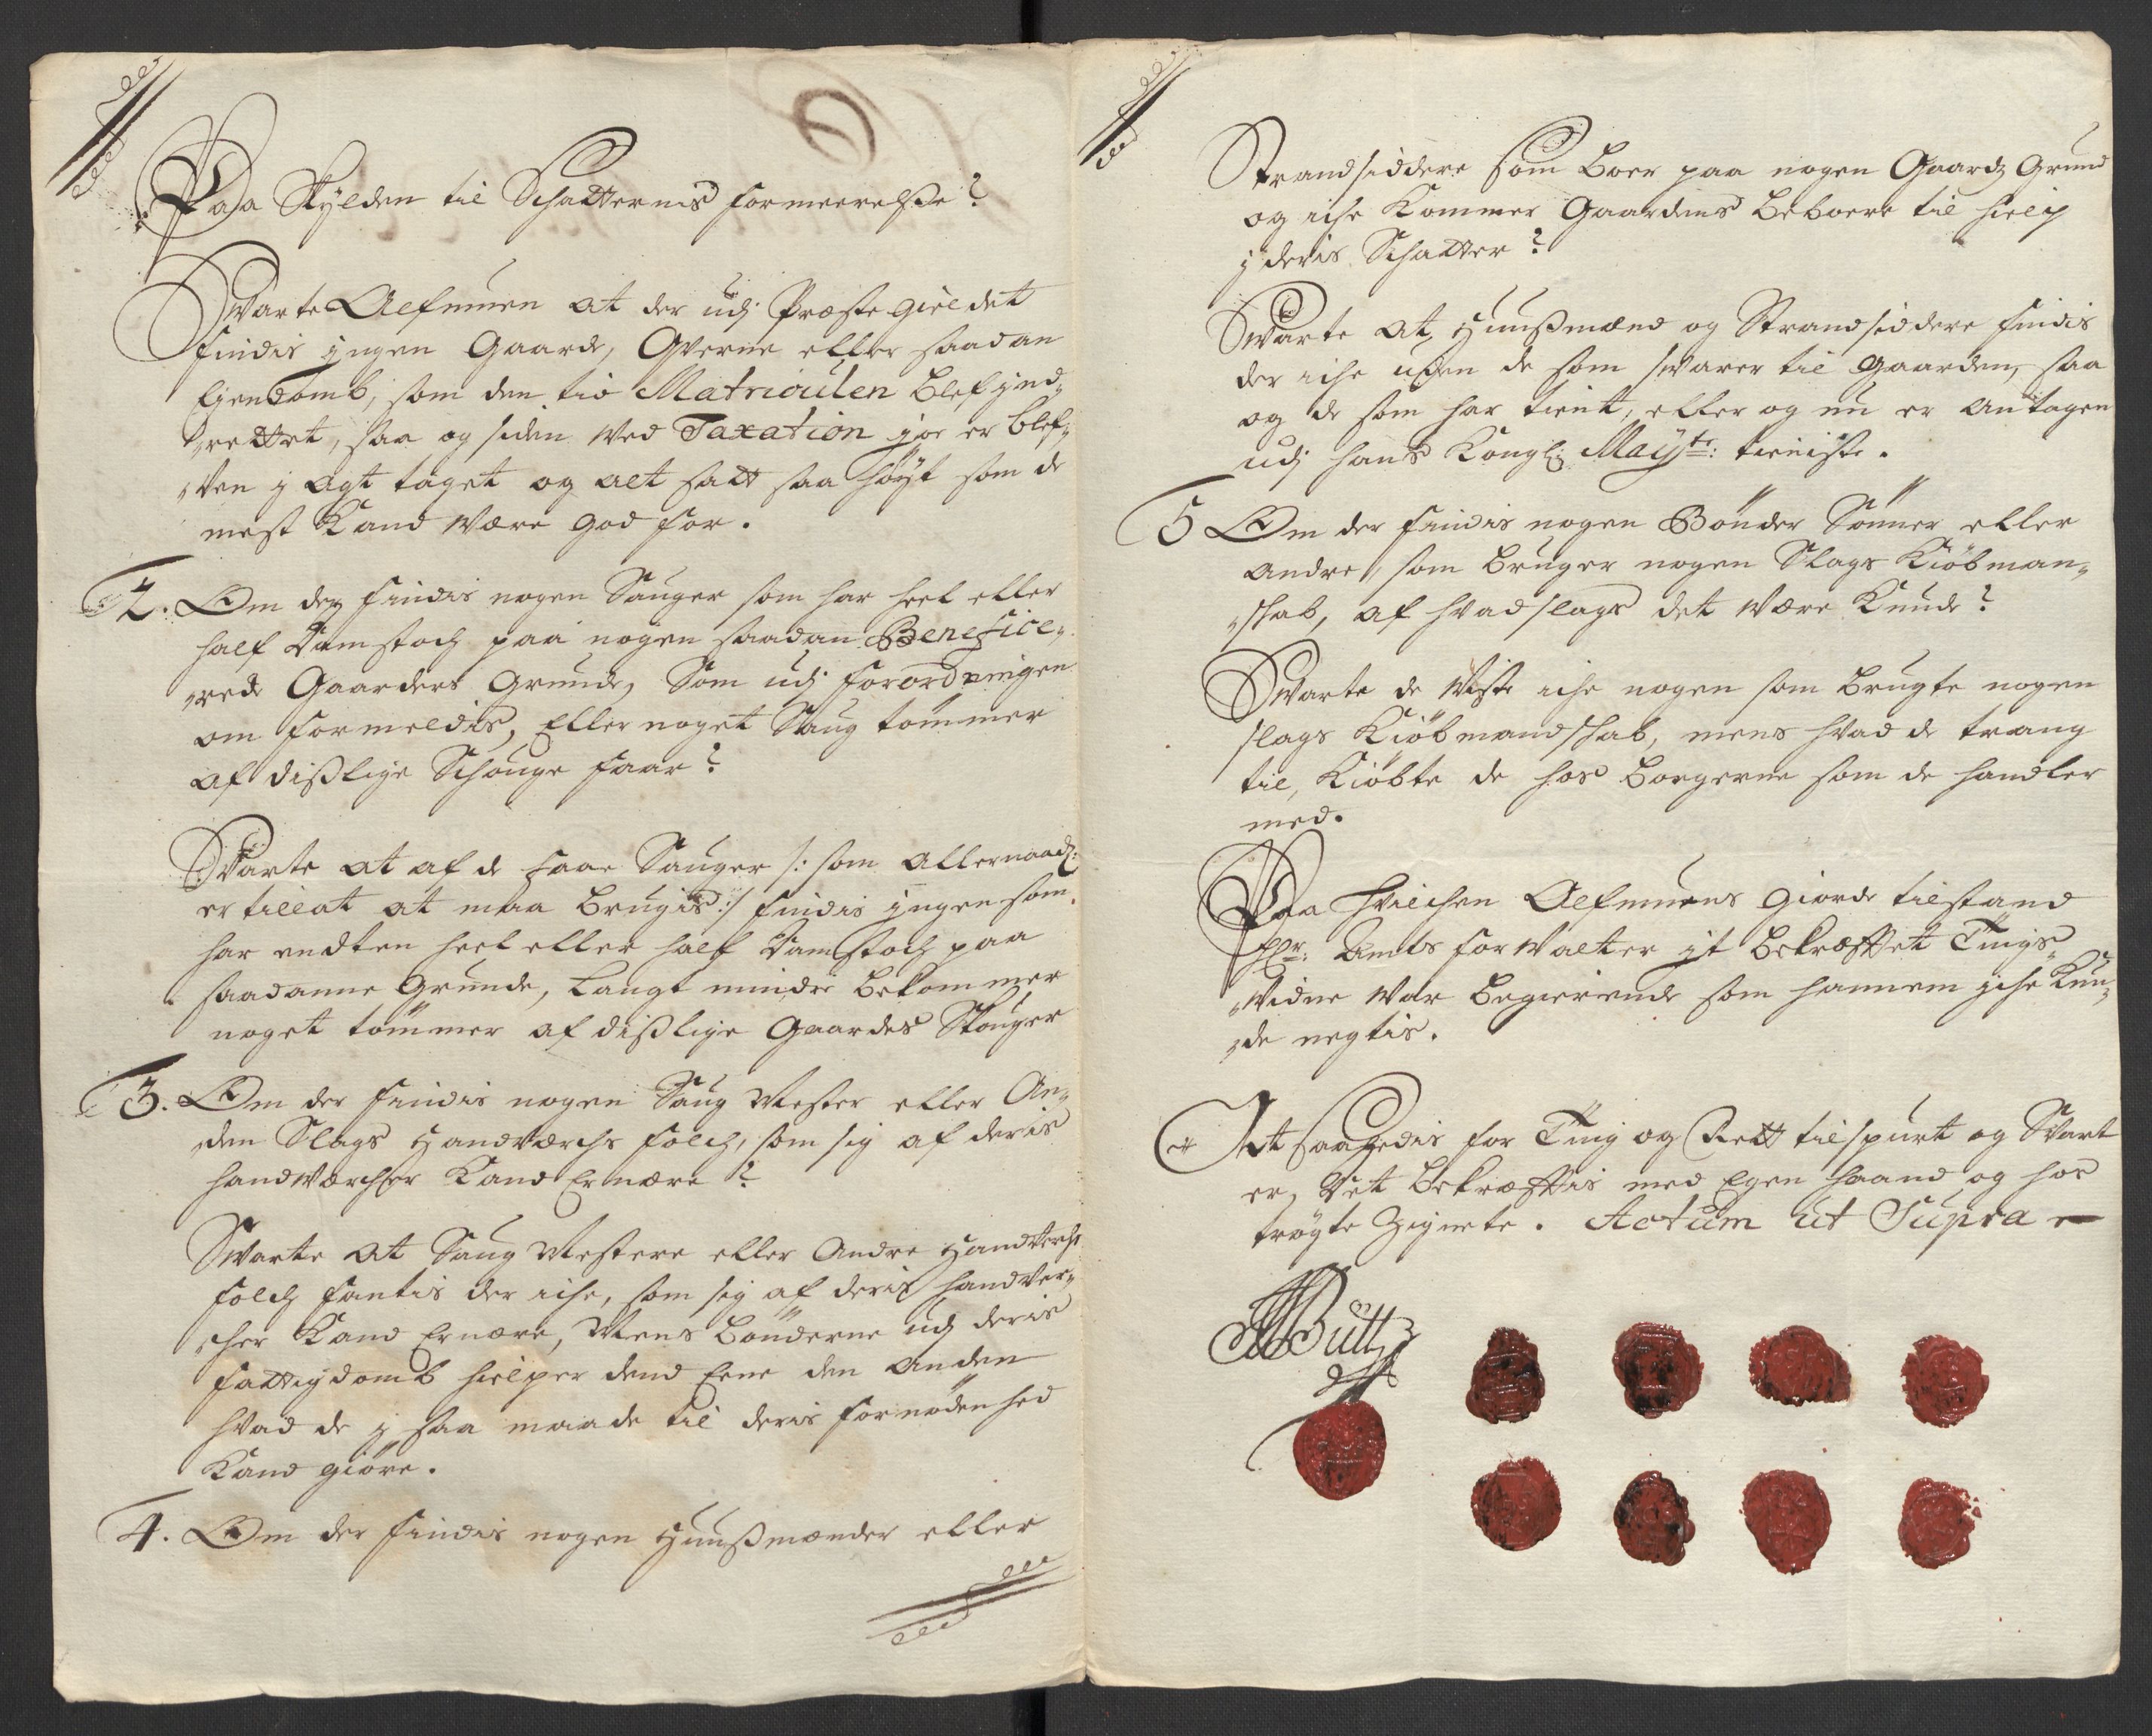 Paa Skylden til Schatternis formeerelse?
Svarte Almuen at der udj Præstegieldet
findis jngen Gaarde, Qverne eller saadan
Eyendomb, som den tid Matriculen blef jnd-
rettet, saa og siden ved Taxation jo er blef-
ven j agt taget og alt satt saa høyt som de
mest kand være god for.
2. Om der findis nogen Sauger som har heel eller
half Damstoch paa nogen saadan Benefice-
rede Gaarders Grunde, Som udj forordningen
om formeldis, Eller noget Saug tømmer
af dislige Schouge faar?
Svarte at af de faae Sauger /: som allernaad:
er tillat at maa brugis :/ findis jngen som
har endten heel eller half Damstoch paa
saadanne Grunde, Langt mindre bekommer
noget tømmer af dislige Gaardes Skouger
3. Om der findis nogen Saug Mester eller An-
den Slags Handværchs folch, som sig af deris
handværcher kand Ernære?
Svarte at Saug Mestere eller Andre Handverchs
folch fantis der iche, som sig af deris handver-
cher kand Ernære, Mens bønderne udj deris
fattigdomb hielper dend Eene den Anden
hvad de j saa maade til deris fornødenhed
kand giøre.
4. Om der findis nogen Huusmænder eller
Strandsiddere som boer paa nogen Gaards Grund
og iche kommer Gaardens beboere til hielp
j deris Schatter?
Svarte at Huusmænd og Strandsiddere findis
der iche uden de som svarer til Gaarden, saa
og de som har tient, eller og nu er Antagen
udj hans Kongl: Mayts: tieniste.
5 Om der findis nogen Bønder Sønner eller
Andre, som bruger nogen Slags Kiøbman-
schab, af hvad slags det være kunde?
Svarte de viste iche nogen som brugte nogen
slags Kiøbmandschab, mens hvad de trang
til, Kiøbte de hos borgerne som de handler
med.
Paa hvilchen Almuens giorde tilstand
Hr: Amts forvalter it bekræfftet Tings-
vidne var begierende som hannem iche kun-
de negtis.
At saaledis for Ting og Rett tilspurt og Svart
er, Det bekræfftis med Egen haand og hos
trøgte Zignete. Actum ut Supra